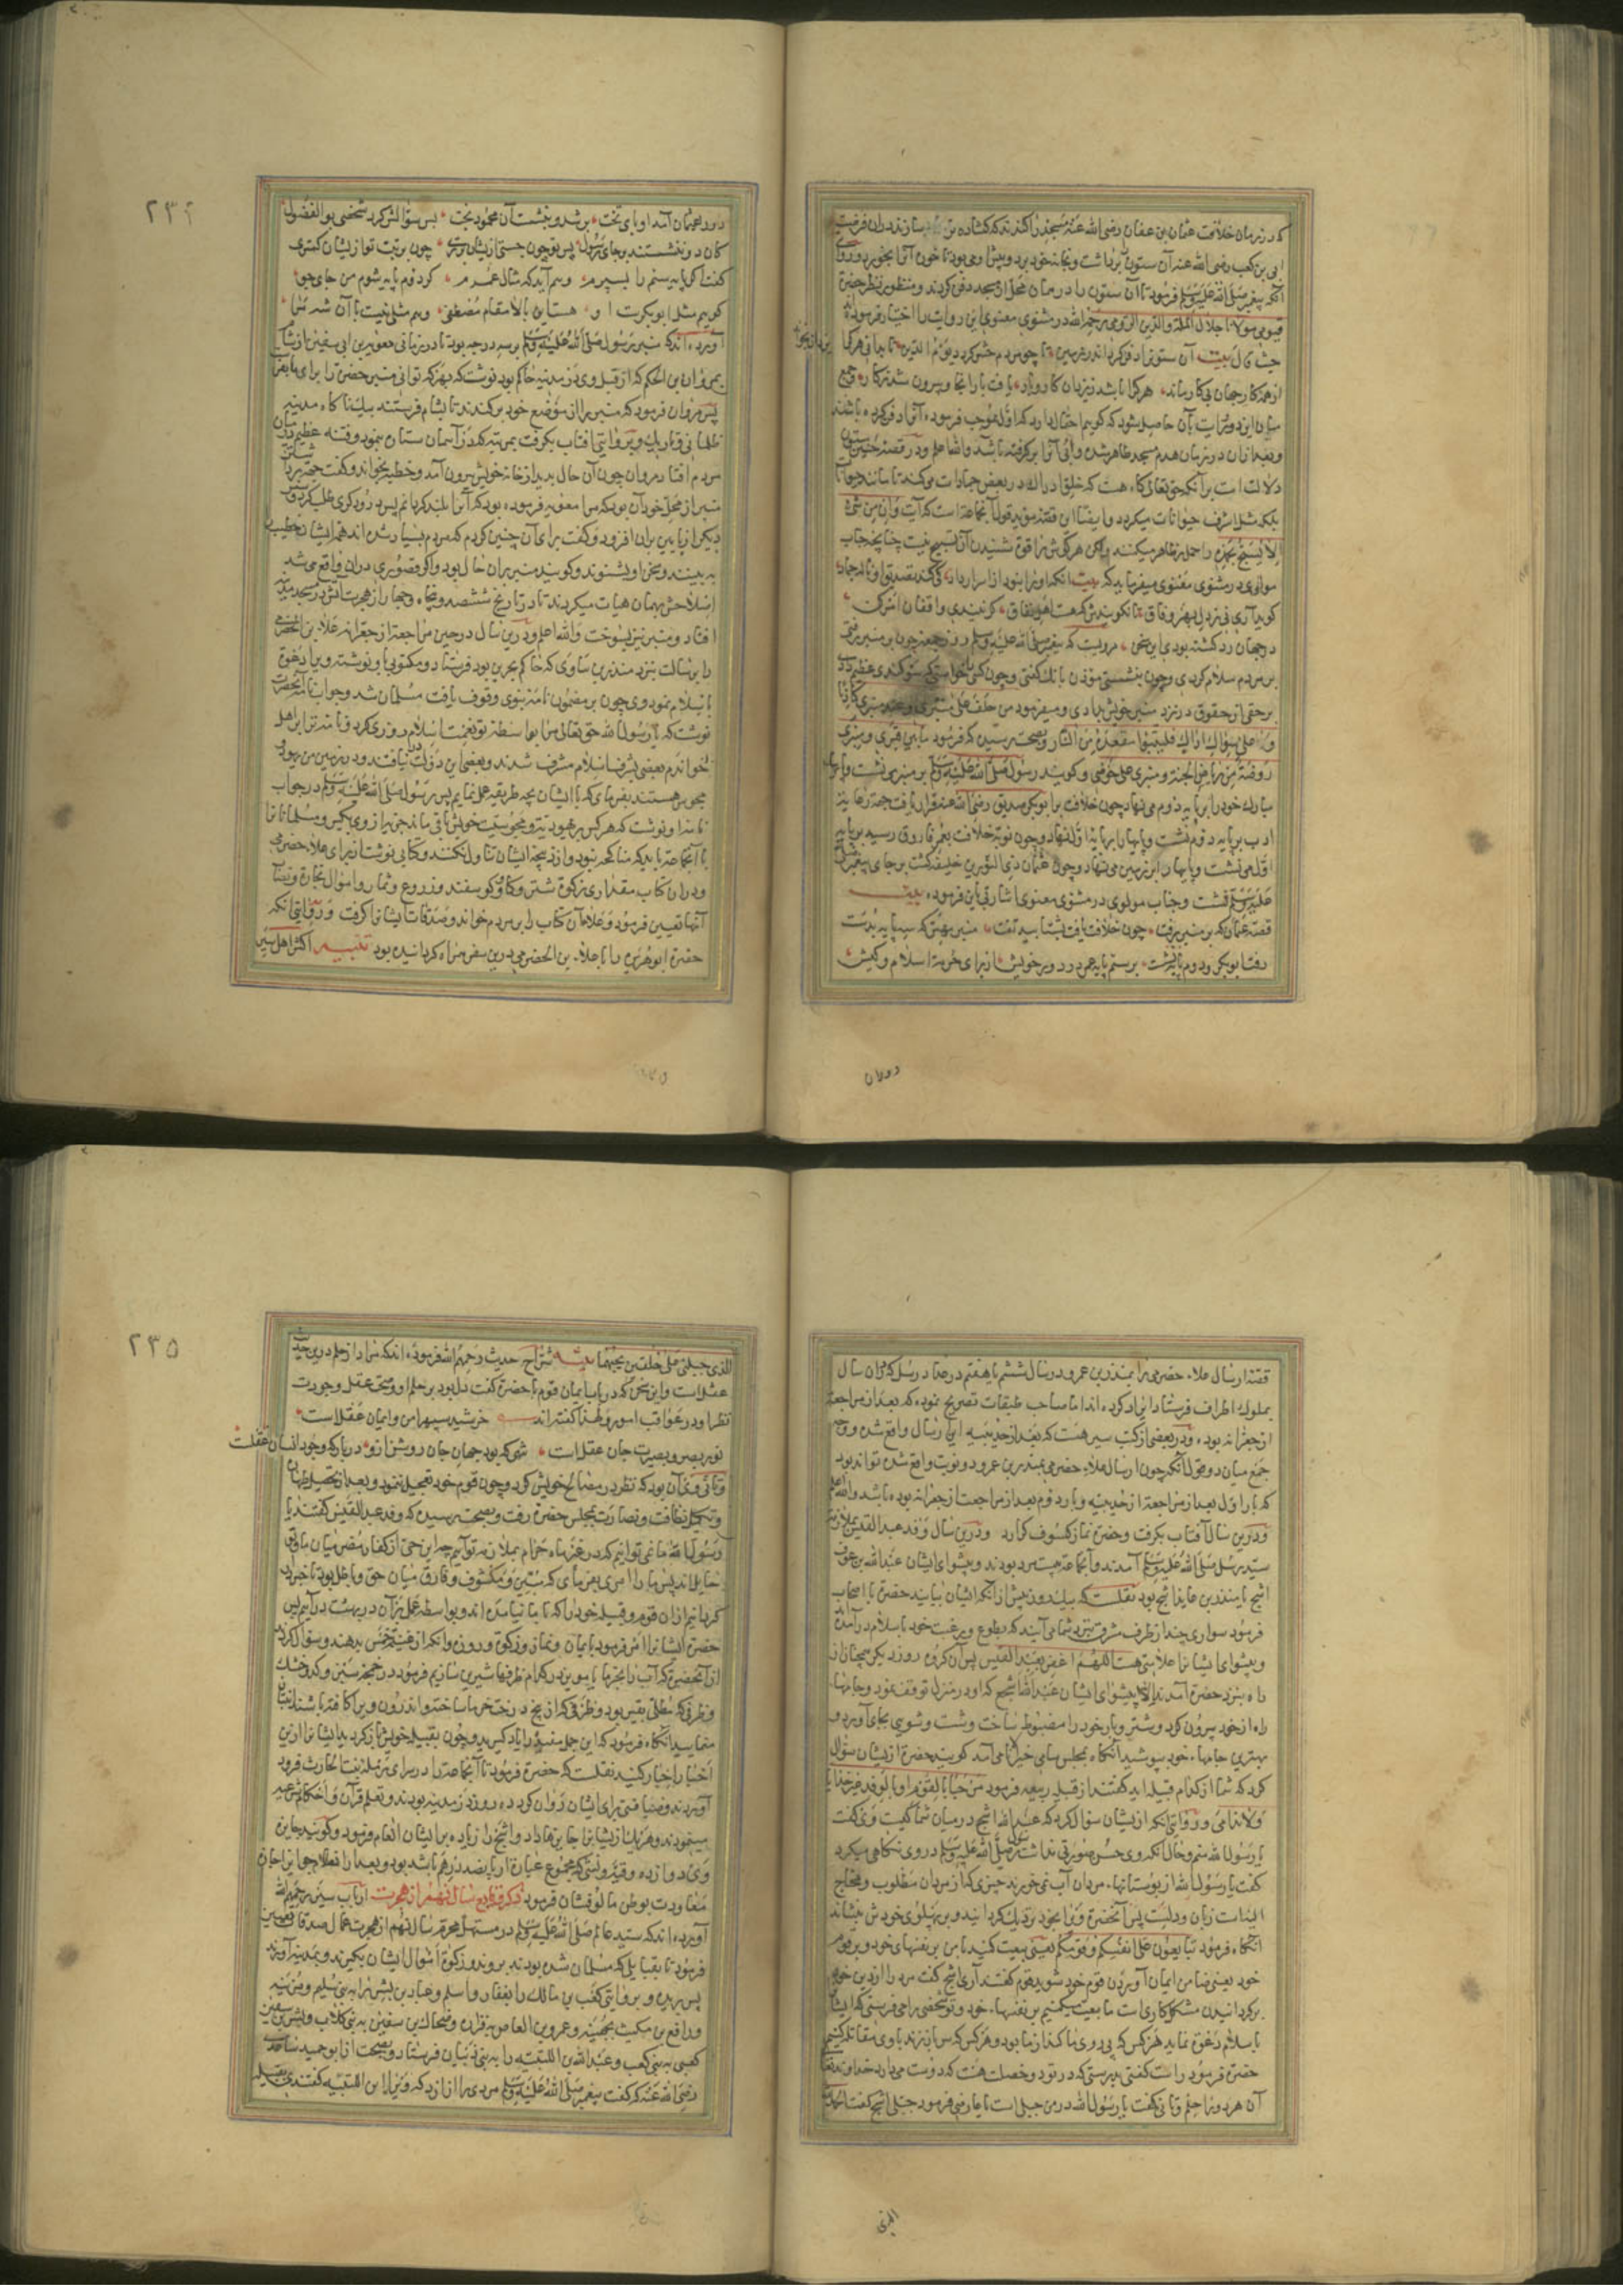 که در زمان خلافت عثمان بن عفان رضی الله عنه مسجد را کندند که کشاده تر سازند دران فرصت
ابی بن کعب رضی الله عنه آن ستون برداشت و بخانه خود برد و پیش او می بود تا خون آنرا بخورد و روایتی
آنکه پیغمبر صلی الله علیه وسلم فرمود تا آن ستون را در همان محل از مسجد دفن کردند و منظور نظر حضرة
قیومی مولانا جلال الملة والدین الرومی رحمه الله در مثنوی معنوی این روایت را اختیار فرموده
حیث قال بیت آن ستونرا دفن کرد اندر زمین تا چو مردم حشر کردد یوم الدین تا بدانی هر کرا
یزدان بخواند
از همه کار جهان بی کار ماند هر کرا باشد ز یزدان کار و بار یافت بار آنجا و بیرون شد ز کار و جمع
میان این دو روایت بآن حاصل میشود که کوییم احتمال دارد که اول بموجب فرموده آنرا دفن کرده باشند
و بعد ازان در زمان هدم مسجد ظاهر شده و ابی آنرا بر کرفته باشد والله اعلم و در قصه حنین ستون
دلالت است بر آنکه حق تعالی کاه هست که خلق ادراک در بعض جمادات می کند تا مانند حیوانات
بلکه مثل اشرف حیوانات میکردد و ایضا این قصه مؤید قول آنجماعة است که آیت وان من شیء
الا یسبح بحمده را حمل بر ظاهر میکنند ولکن هر کوش را قوة شنیدن آن تسبیح نیست چنانچه جناب
مولوی در مثنوی معنوی میفرماید که بیت آنکه او را نبود از اسرار داد کی کند تصدیق او ناله جماد
کوید آری نی ز دل بهر وفاق تا نکویندش که هست اهل نفاق کر نیندی واقفان امر کن
در جهان رد کشته بودی این سخن مرویست که پیغمبر صلی الله علیه وسلم روز جمعه چون بر منبر رفتی
بر مردم سلام کردی و چون بنشستی مؤذن بانک کفتی و چون کسی خواستی که سوکندی عظیم دهد
بر حقی از حقوق در نزد منبر خویش دادی و میفرمود من حلف علی منبری او عند منبری کاذبا
ولو علی سواک اراک فلیتبوا مقعده من النار و بصحت رسیده که فرمود ما بین قبری و منبری
روضة من ریاض الجنة و منبری علی حوضی و کویند رسول صلی الله علیه وسلم بر منبر می نشست و پای
مبارک خود را بر پایه دوم می نهاد چون خلافت بر ابوبکر صدیق رضی الله عنه قرار یافت جهة رعایة
ادب بر پایه دوم نشست و پایها را بر پایه اول نهاد و چون نوبة خلافت بعمر فاروق رسید بر پایه
اول می نشست و پایها را بر زمین می نهاد و چون عثمان ذی النورین خلیفه کشت بر جای پیغمبر صلی الله
علیه وسلم نشست و جناب مولوی در مثنوی معنوی اشارتی باین فرموده بیت
قصه عثمان که بر منبر برفت چون خلافت یافت بشتابید تفت منبر مهتر که سه پایه بدست
رفت ابوبکر و دوم پایه نشست بر سیم پایه عمر در دور خویش از برای حرمة اسلام و کیش
دوران
٢٣٤
دور عثمان آمد او بالای تخت بر شد و بنشست آن محمود بخت پس سؤالش کرد شخصی بوالفضول
کان دو ننشستند بر جای رسول پس تو چون جستی ازیشان برتری چون برتبت تو ازیشان کمتری
کفت اکر پایه سیم را بسپرم وهم آید که مثال عمرم کر دوم پایه شوم من جای جو
کویی مثل ابوبکرست او هست این بالا مقام مصطفی وهم مثلی نیست با آن شه مرا
آورده اند که منبر رسول صلی الله علیه وسلم بر سه درجه بود تا در زمانی معویه بن ابی سفین از شام
بمروان بن الحکم که از قبل وی در مدینه حاکم بود نوشت که بهر نوع توانی منبر حضرت را برای ما بفرست
پس مروان فرمود که منبر را از موضع خود بر کندند تا بشام فرستند بیک ناکاه مدینه
ظلمانی و تاریک و بروایتی افتاب بکرفت بمرتبه که در آسمان ستاره می نمود و فتنه عظیم در میان
مردم افتاد مروان چون آن حال بدید از خانه خویش بیرون آمد و خطبه بخواند و کفت جهة برداشتن
منبر از محل خود آن بود که مرا معویه فرموده بود که آنرا بلند کردانم پس درودکری طلب کرد و
دیکر از پایین بران افزود و کفت برای آن چنین کردم که مردم بسیار شده اند تا همه ایشان خطیب را
به بینند و سخن او بشنوند و کویند منبر بران حال بود و اکر قصوری دران واقع می شد
اصلاحش بهمان هیات میکردند تا در تاریخ ششصد و پنجاه و چهار از هجرت آتش در مسجد مدینه
افتاد و منبر نیز بسوخت والله اعلم و درین سال در حین مراجعة از جعرانه علاء بن الحضرمی
را برسالت بنزد منذر بن ساوی که حاکم بحرین بود فرستاد و مکتوبی باو نوشته ویرا دعوة
باسلام نمود وی چون بر مضمون نامه نبوی وقوف یافت مسلمان شد و جواب نامه آنحضرت
نوشت که یا رسول الله حق تعالی مرا بواسطه تو نعمت اسلام روزی کرد و نامه ترا بر اهل
خواندم بعضی بشرف اسلام مشرف شدند و بعضی این دولت نیافتند و در زمین من یهود و
مجوس هستند بفرمای که با ایشان بچه طریقه عمل نمایم پس رسول صلی الله علیه وسلم در جواب
نامه او نوشت که هر کس بر یهودیت و مجوسیت خویش باقی ماند جزیه از وی بکیر و مسلمانانرا
با آنجماعة باید که مناکحه نبود و از ذبیحه ایشان تناول نکنند و کتابی نوشت از برای علاء حضرمی
و دران کتاب مقدار زکوة شتر و کاو و کوسفند و زروع و ثمار و اموال تجارة و نصاب
آنها تعیین فرمود و علاء آن کتاب را بر مردم خواند و صدقات ایشانرا کرفت و روایتی آنکه
حضرة ابو هریره را با علاء بن الحضرمی درین سفر همراه کردانیده بود تنبیه اکثر اهل سیر
قصه ارسال علاء حضرمی را بمنذر بن عمرو در سال ششم یا هفتم در صدد رسل که دران سال
بملوک اطراف فرستاد ایراد کرده اند اما صاحب طبقات تصریح نموده که بعد از مراجعة
از جعرانه بود و در بعضی از کتب سیر هست که بعد از حدیبیه این ارسال واقع شده و وجه
جمع میان دو قول آنکه چون ارسال علاء حضرمی بمنذر بن عمرو دو نوبت واقع شده تواند بود
که بار اول بعد از مراجعة از حدیبیه و بار دوم بعد از مراجعت از جعرانه بوده باشد والله اعلم
و درین سال آفتاب بکرفت و حضرة نماز کسوف کزارد و درین سال وفد عبد القیس بملازمت
سید رسل صلی الله علیه وسلم آمدند و آنجماعة بیست مرد بودند و پیشوای ایشان عبد الله بن عوف
اشج یا منذر بن عایذ اشج بود نقلست که بیک روز پیش از آنکه ایشان بیایند حضرة با اصحاب
فرمود سواری چند از طرف مشرق بنزد شما می آیند که بطوع و رغبت خود باسلام درآمده
و پیشوای ایشانرا علامتی هست اللهم اغفر لعبد القیس پس آن کروه روز دیکر همچنان از
راه بنزد حضرة آمدند الا پیشوای ایشان عبد الله اشج که او در منزل توقف نمود و جامها
راه از خود بیرون کرد و شتر و بار خود را مضبوط ساخت و شست و شویی بجای آورد و
بهترین جامها خود بپوشید آنکاه بمجلس سامی خیر الانامی آمد کویند حضرة ازیشان سؤال
کرد که شما از کدام قبیله اید کفتند از قبیله ربیعه فرمود مرحبا بالقوم او بالوفد غیر خزایا
ولا ندامی و روایتی آنکه ازیشان سؤال کرد که عبد الله اشج در میان شما کیست وی کفت
یا رسول الله منم و حال آنکه وی حسن صورتی نداشت رسول صلی الله علیه وسلم در وی نکاهی میکرد
کفت یا رسول الله از پوستانها مردان آب نمی خورند چیزی که از مردان مطلوب و محتاج
الیه است زبان و دلست پس آنحضرة ویرا بخود نزدیک کردانید و بر پهلوی خودش بنشاند
آنکاه فرمود تبایعون علی انفسکم و قومکم یعنی بیعت کنید با من بر نفسهای خود و بر قوم
خود یعنی ضامن ایمان آوردن قوم خود شوید قوم کفتند آری اشج کفت مرد را از دین خود
بر کردانیدن مشکل کاری است ما بیعت میکنیم بر نفسهای خود و تو شخصی را می فرستی که ایشانرا
باسلام دعوة نماید هر کس که پیروی ما کند از ما بود و هر کس که سر باز زند با وی مقاتله کنیم
حضرة فرمود راست کفتی بدرستی که در تو دو خصلت هست که دوست میدارد خداوند تعالی
آن هر دو را حلم و تانی کفت یا رسول الله در من جبلی است یا عارضی فرمود جبلی اشج کفت الحمد لله
الذی
٢٣٥
الذی جبلنی علی خلقین یحبهما الله شراح حدیث رحمهم الله فرموده اند که مراد از حلم درین حدیث
عقل است و این سخن که در باب ایمان قوم با حضرة کفت دلیل بود بر حلم او و صحت عقل و جودت
نظر او در عواقب امور و لهذا کفته اند خرشید سپهر امن و ایمان عقل است
نور بصر و بصیرت جان عقل است شمعی که بود جهان جان روشن ازو در بارکه وجود انسان عقلست
و تانی وی آن بود که نظر در مصالح خویش کرد و چون قوم خود تعجیل ننمود و بعد از تحصیل طهارت
و تکمیل نظافت و نضارت بمجلس حضرة رفت و بصحت رسیده که وفد عبد القیس کفتند یا
رسول الله ما نمی توانیم که در غیر ماه حرام بملازمت تو آییم چه این حی از کفار مضر میان ما و تو
حایل اند پس ما را امری بفرمای که مبین و مکشوف و فارق میان حق و باطل بود تا خبر
کردانیم ازان قوم و قبیله خود را که با ما نیامده اند و بواسطه عمل بدان در بهشت درآییم پس
حضرة ایشانرا امر فرمود بایمان و نماز و زکوة و روزه و آنکه از غنیمة خمس بدهند و سؤال کردند
از آنحضرة که آب را بخرما یا مویز در کدام ظرفها شیرین سازیم فرمود در خمچه سبزین و کدو خشک
و ظرفی که مطلی بقیر بود و ظرفی که از بیخ درخت خرما ساخته و اندرون ویرا کافته باشند انتباذ
منمایید آنکاه فرمود که این جمل مفیده را یاد کیرید و چون بقبیله خویش باز کردید ایشانرا ازین
اخبار اخبار کنید نقلست که حضرة فرمود تا آنجماعة را در سرای رمله بنت الحارث فرود
آوردند و ضیافتی برای ایشان روان کرد ده روز در مدینه بودند و تعلم قرآن و احکام شرعیه
مینمودند و هر یک ازیشانرا جایزها داد و اشج را زیاده بر ایشان انعام فرمود و کویند جایزه
وی دوازده وقیه و نشی که مجموع عبارة از پانصد درهم باشد بود و بعد از انعام جوایز اجازة
معاودت بوطن مالوفشان فرمود ذکر وقایع سال نهم از هجرت ارباب سیر رحمهم الله
آورده اند که سید عالم صلی الله علیه وسلم در مستهل محرم سال نهم از هجرت عمال صدقات تعیین
فرمود تا بقبایلی که مسلمان شده بودند بروند و زکوة اموال ایشان بکیرند و بمدینه آورند
پس بریده و بروایتی کعب بن مالک را بغفار و اسلم و عباد بن بشر را به بنی سلیم و مزینه
و رافع بن مکیث بجهینه و عمرو بن العاص بفزاره و ضحاک بن سفین به بنی کلاب و بشر بن سفین
کعبی به بنی کعب و عبد الله بن اللتبیه را به بنی ذبیان فرستاد و بصحت از ابو حمید ساعدی
رضی الله عنه که کفت پیغمبر صلی الله علیه وسلم مردی را از ازد که ویرا ابن اللتبیه کفتندی بقبیله